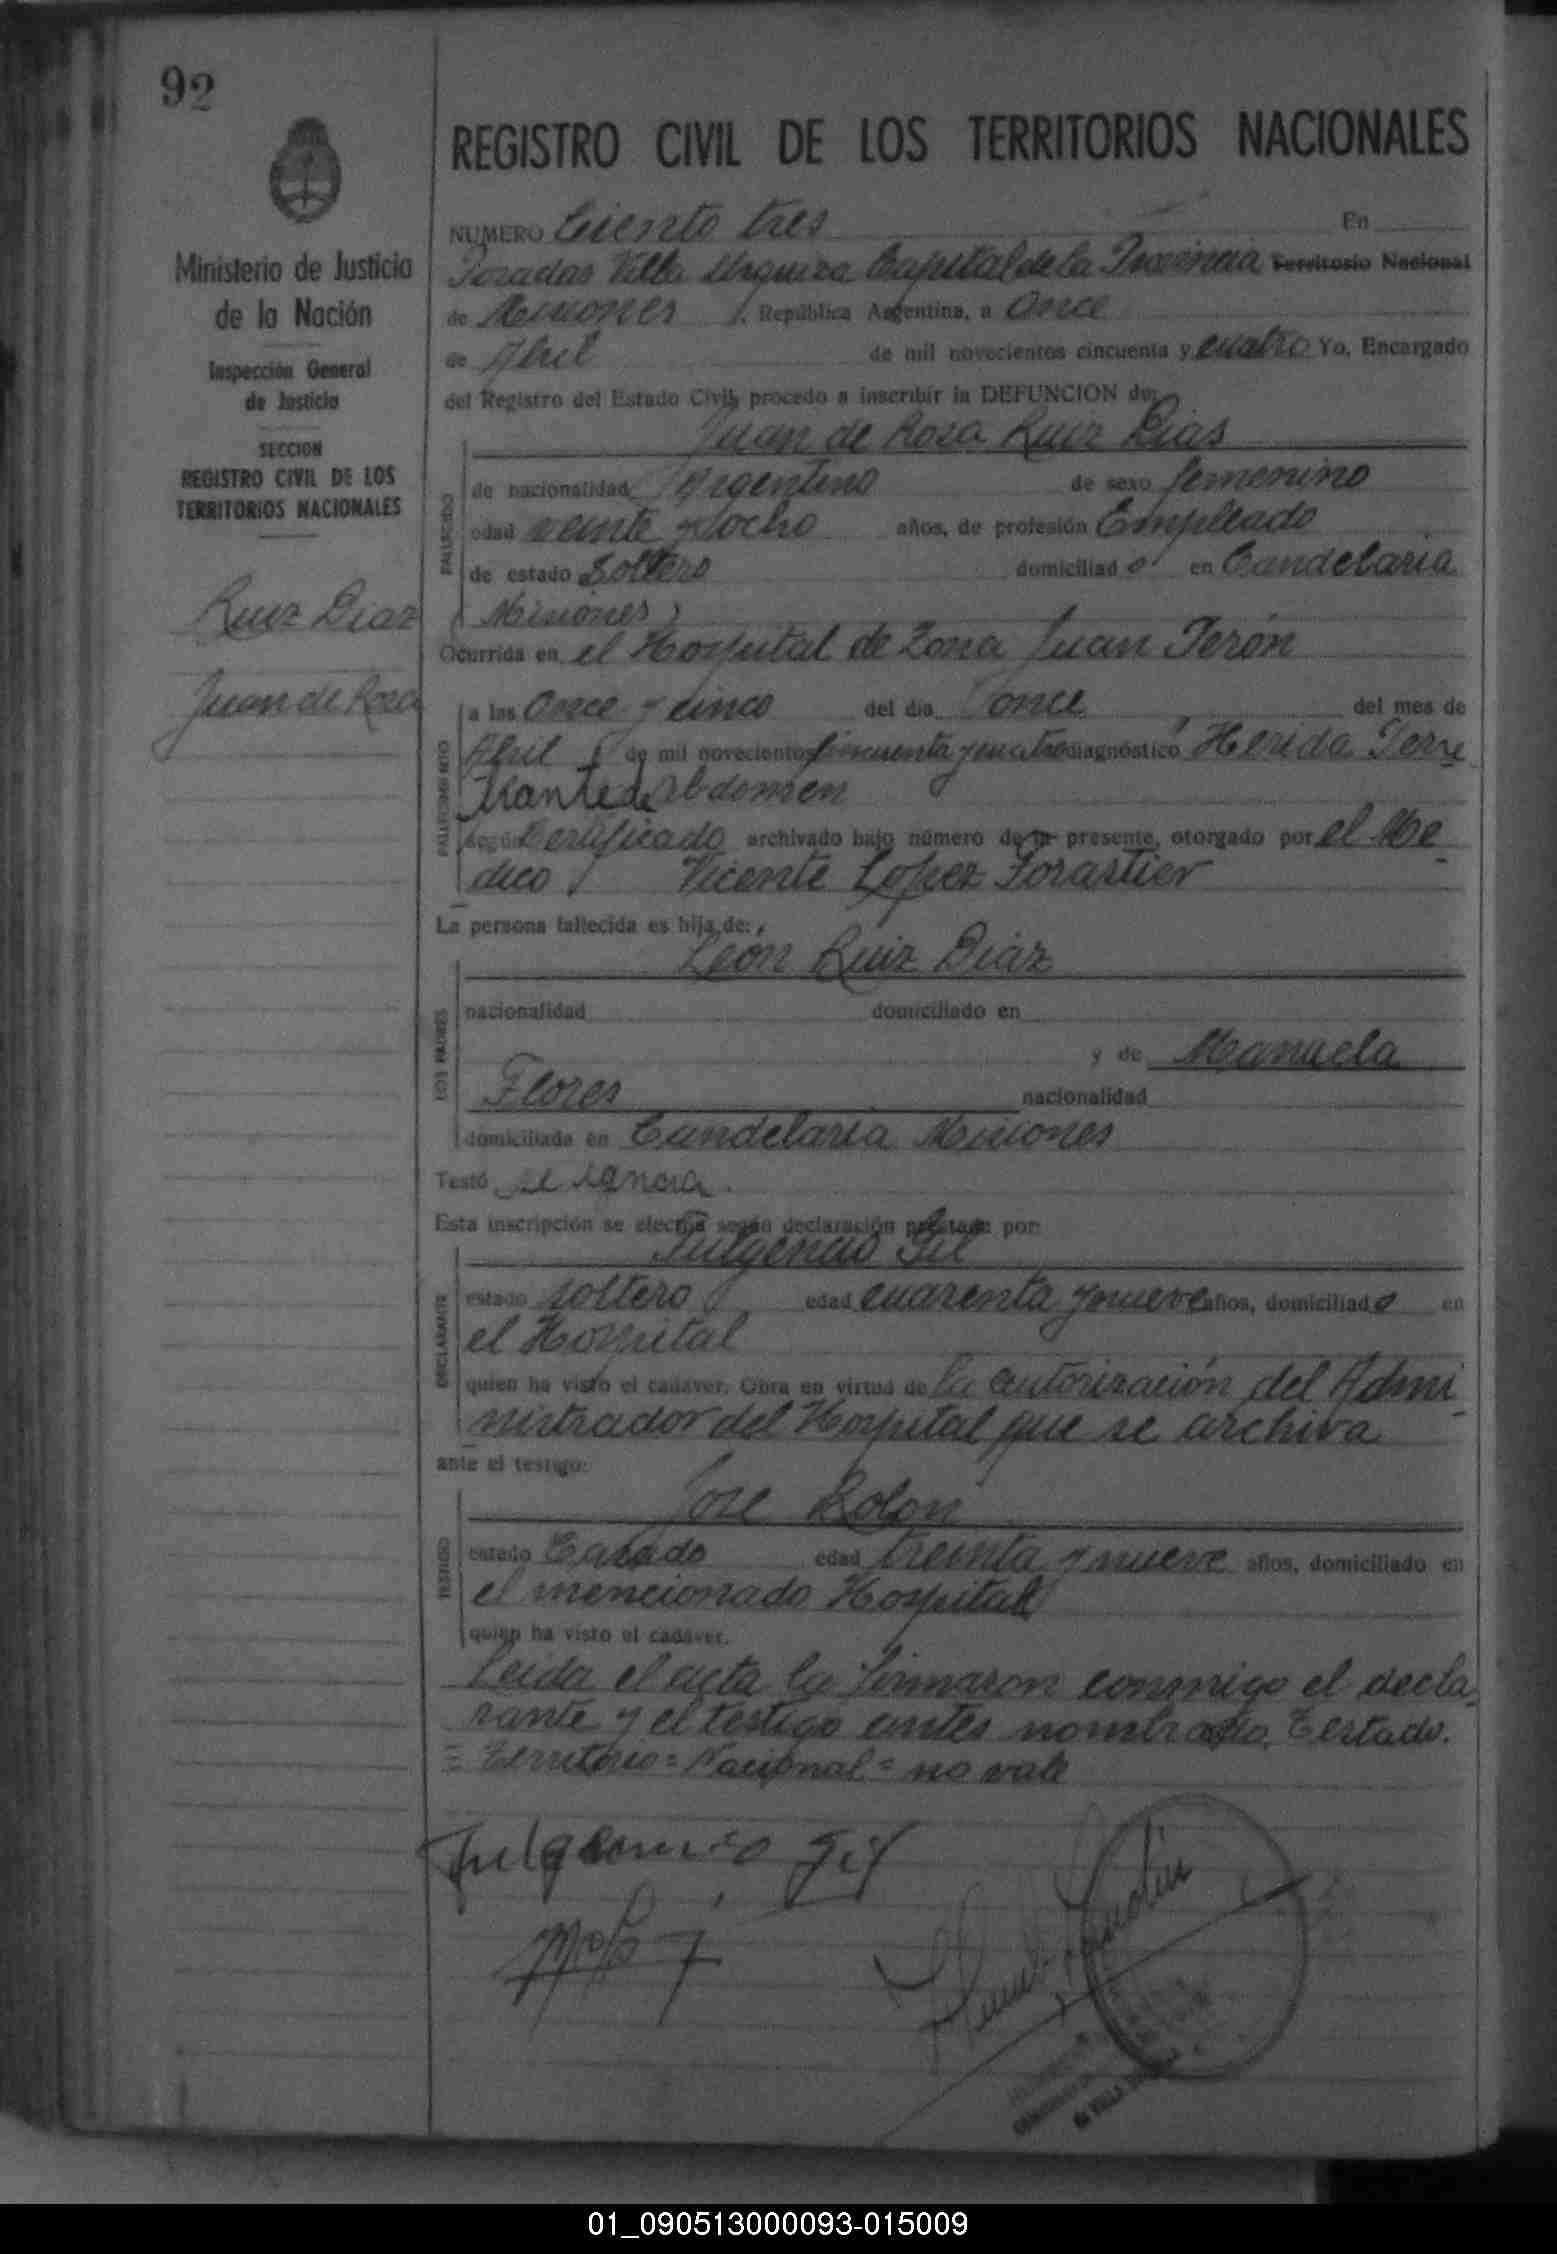 92
REGISTRO CIVIL DE LOS TERRITORIOS NACIONALES
Ministerio de Justicia
de la Nación
Inspección General
de Justicia
SECCION
REGISTRO CIVIL DE LOS
TERRITORIOS NACIONALES
Ruiz Diaz
Juan de Rosa
NUMERO Ciento tres En
Posadas Villa Urquiza Capital de la Provincia Territorio Nacional
de Misiones, República Argentina, a Once
de Abril de mil novecientos cincuenta y cuatro Yo, Encargado
del Registro del Estado Civil, procedo a inscribir la DEFUNCION de:
Juan de Rosa Ruiz Dias
FALLECIDO
de nacionalidad Argentino de sexo femenino
edad veinte y ocho años, de profesión Empleado
de estado Soltero domiciliado en Candelaria
(Misiones)
Ocurrida en el Hospital de Zona Juan Perón
FALLECIMIENTO
a las Once y cinco del día once del mes de
Abril de mil novecientos cincuenta y cuatro diagnóstico Herida Pene
trante de Abdomen
según Certificado archivado bajo número de la presente, otorgado por el Mé-
dico Vicente Lopez Forastier
La persona fallecida es hija de:
León Ruiz Diaz
LOS PADRES
nacionalidad domiciliado en
y de Manuela
Flores nacionalidad
domiciliada en Candelaria Misiones
Testó se ignora.
Esta inscripción se efectúa según declaración prestada por:
Fulgencio Gil
DECLARANTE
estado soltero edad cuarenta y nueve años, domiciliado en
el Hospital
quien ha visto el cadáver. Obra en virtud de la autorización del Admi-
nistrador del Hospital que se archiva
ante el testigo:
José Rolon
TESTIGO
estado Casado edad treinta y nueve años, domiciliado en
el mencionado Hospital
quien ha visto el cadáver.
Leida el acta la firmaron conmigo el decla-
rante y el testigo antes nombrado. Testado.
Territorio = Nacional = no vale
Fulgencio Gil
01_090513000093-015009